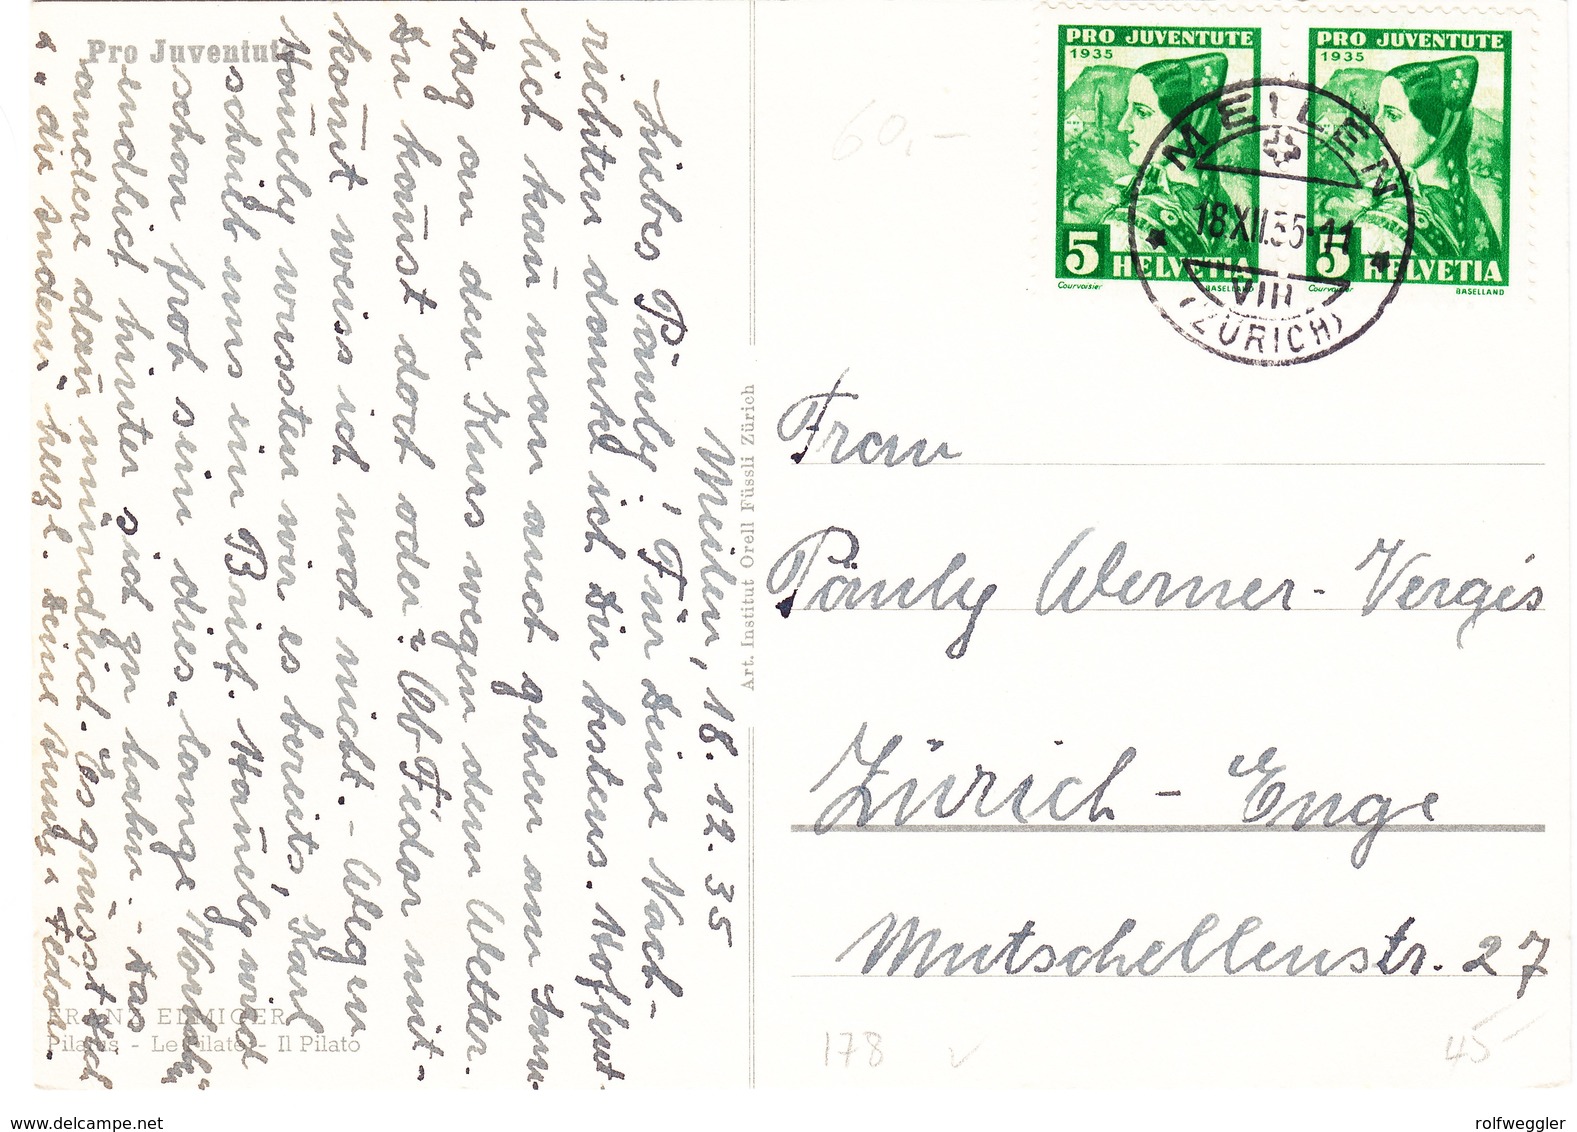 Pro Juventute
Meilen, 18. 12. 35
Liebes Päuly! Für Deine Nach-
richten danke ich Dir bestens. Hoffent-
lich kan̄ man auch gehen am Sam̄-
tag an den Kurs wegen dem Wetter.
Du kan̄st dort oder? Ob Fédor mit-
kom̄t weiss ich noch nicht. - Wegen
Han̄ely wussten wir es bereits, Karl
schrieb uns ein Brief. Han̄ely wird
schon froh sein dies "lange Vorhaben"
endlich hinter sich zu haben. - Das
andere dan̄ mündlich. Es grüsst Dich
u. "die andern" herzl. Deine & Fédor.
FRANZ ELMIGER
Pilatus - Le Pilate - Il Pilato
Art. Institut Orell Füssli Zürich
PRO JUVENTUTE
1935
5 HELVETIA
Courvoisier BASELLAND
PRO JUVENTUTE
1935
5 HELVETIA
Courvoisier BASELLAND
MEILEN
18.XII.35-11
VIII
(ZÜRICH)
60,-
Frau
Päuly Werner-Vergis
Zürich - Enge
Mutschellenstr. 27
178
45-
www.delcampe.net
rolfweggler